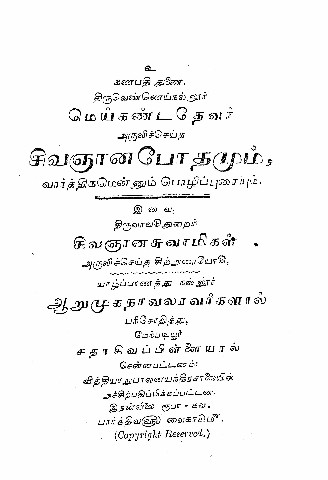 உ
கணபதி துணை.
திருவெண்ணெய்நல்லூர்
மெய்கண்டதேவர்
அருளிச்செய்த
சிவஞானபோதமும்,
வார்த்திகமென்னும் பொழிப்புரையும்.
இவை,
திருவாவடுதுறை
சிவஞானசுவாமிகள்
அருளிச்செய்த சிற்றுரையோடு,
யாழ்ப்பாணத்து நல்லூர்
ஆறுமுகநாவலரவர்களால்
பரிசோதித்து,
மேற்படியூர்
சதாசிவப்பிள்ளையால்
சென்னபட்டணம்:
வித்தியாநுபாலனயந்திரசாலையில்
அச்சிற்பதிப்பிக்கப்பட்டன.
இதன்விலை ரூபா
பார்த்திவ௵ வைகாசி௴.
(Copyright Reserved.)